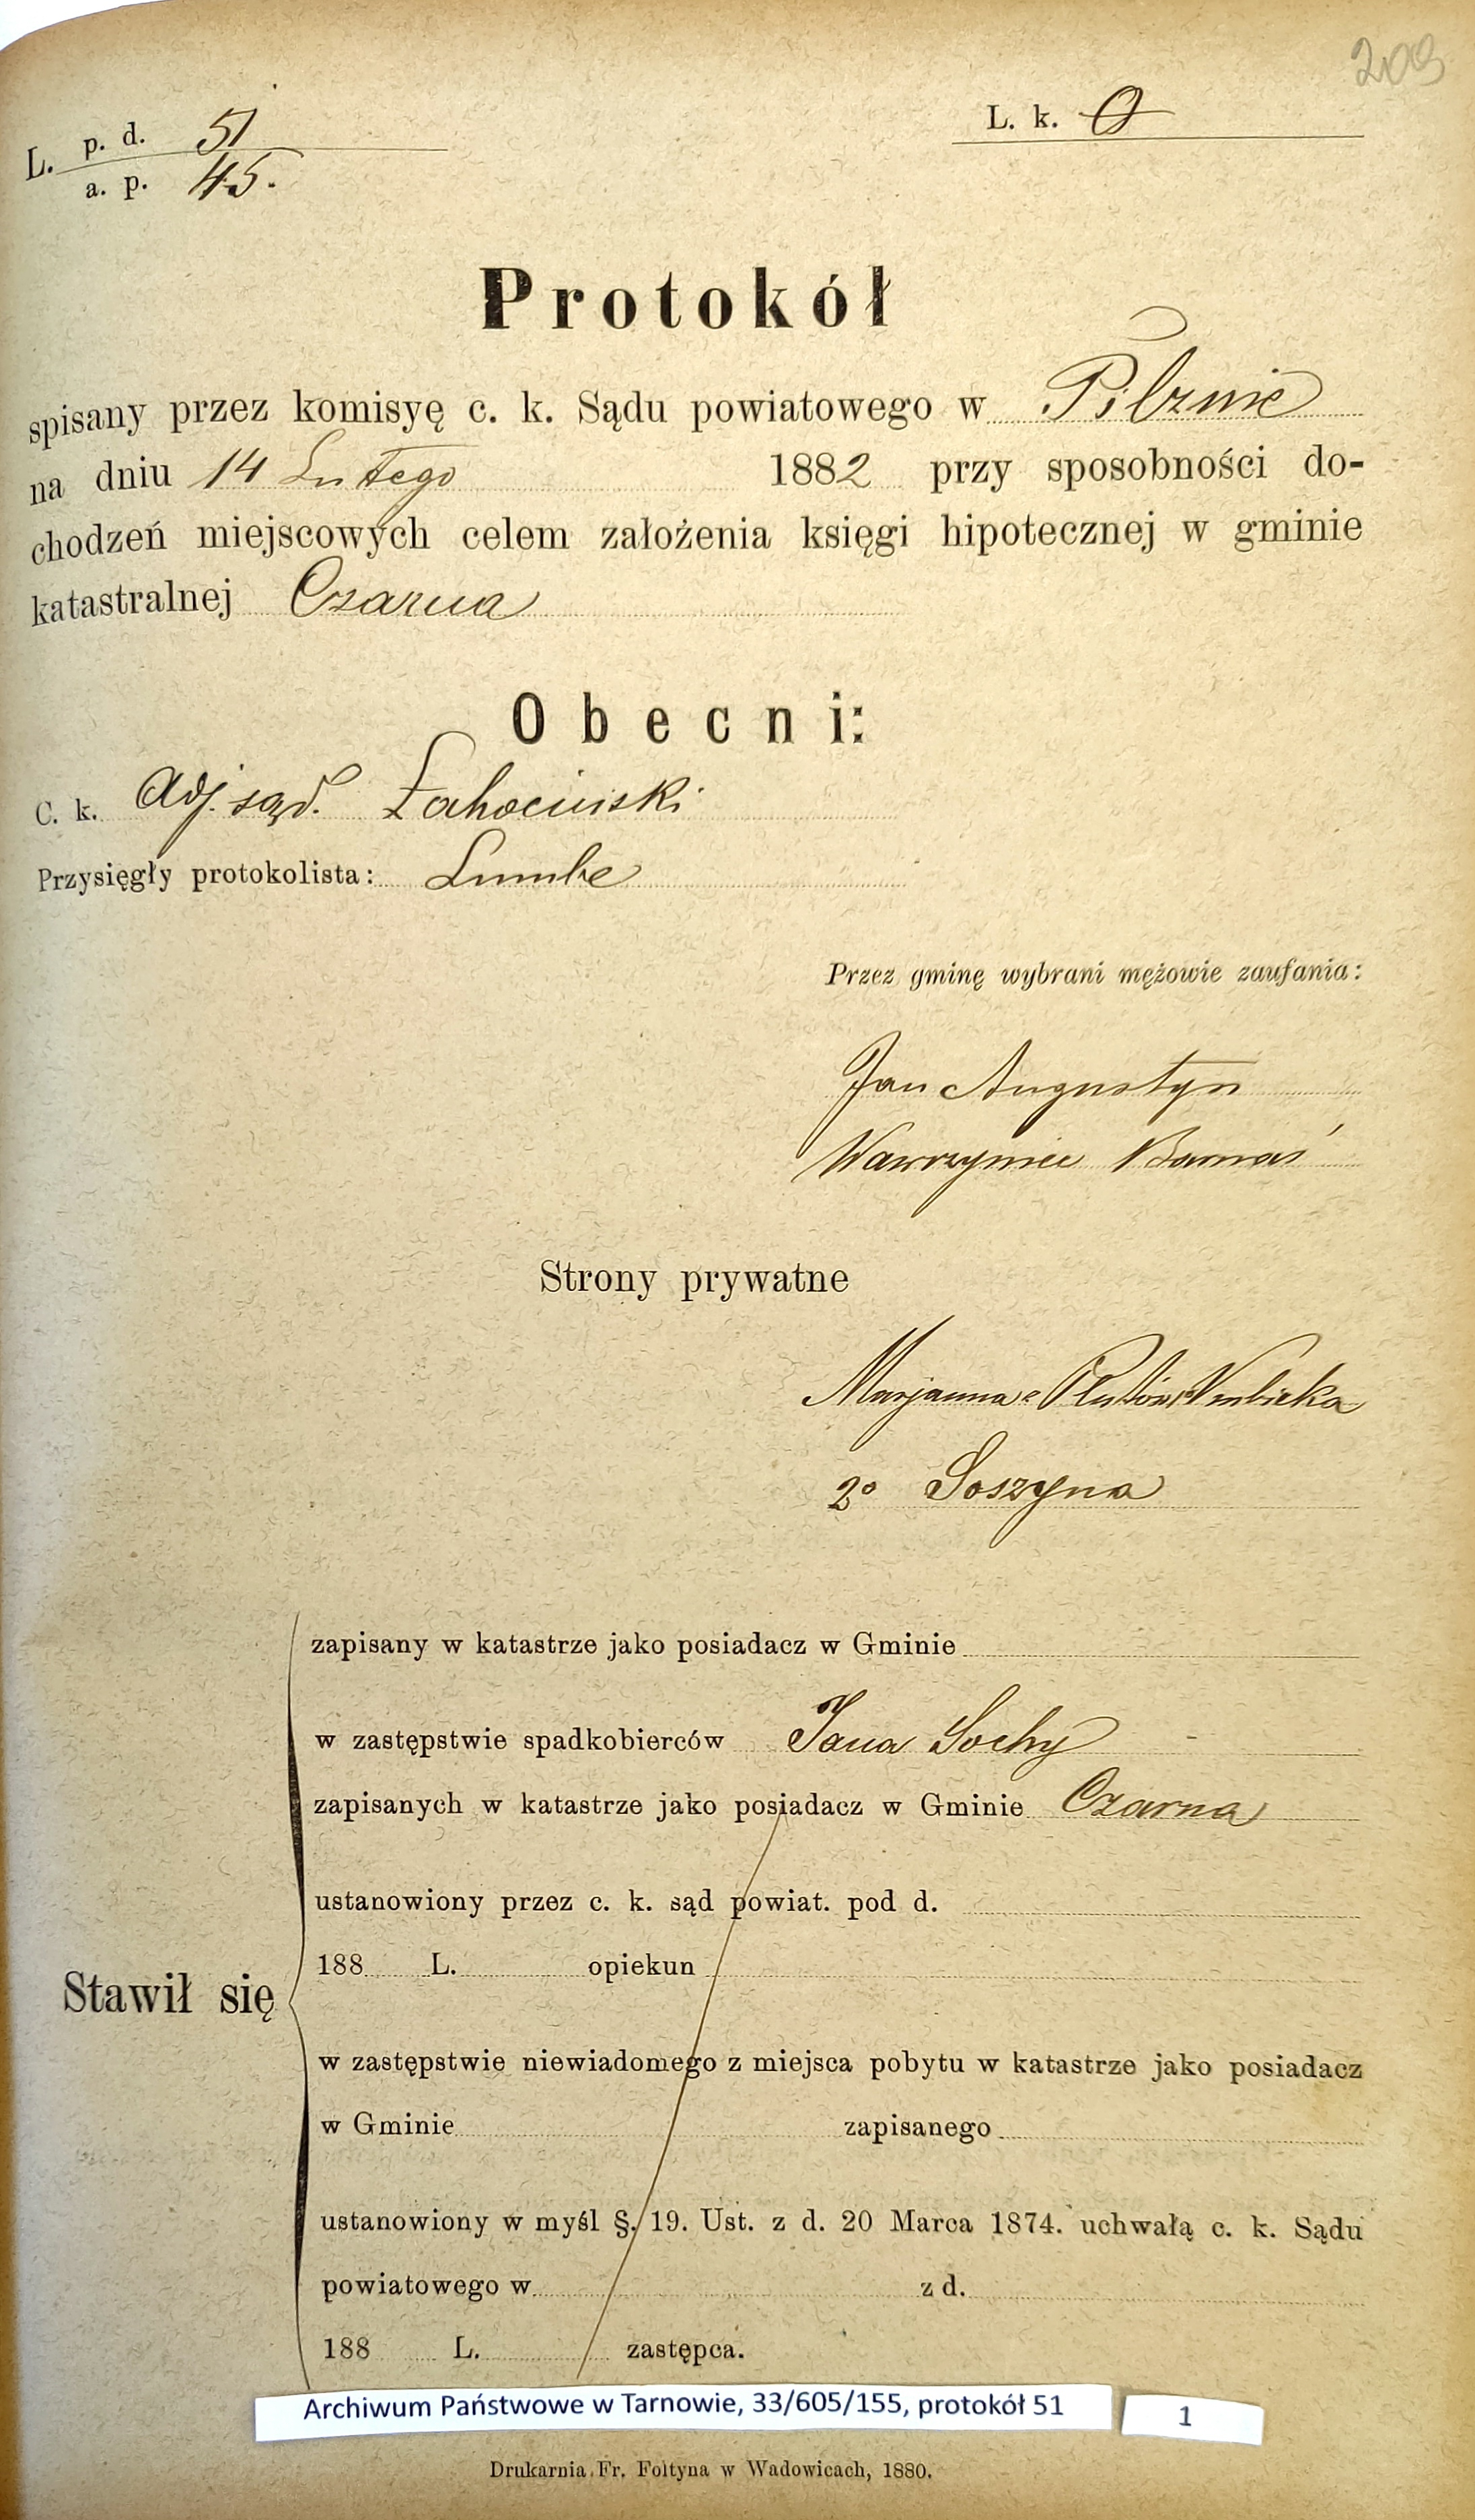 209
L. p. d. 51
a. p. 45.
L. k. 0
Protokół
spisany przez komisyę c. k. Sądu powiatowego w Pilznie
na dniu 14 Lutego 1882 przy sposobności do-
chodzeń miejscowych celem założenia księgi hipotecznej w gminie
katastralnej Czarna
Obecni:
C. k. Adj. sąd. Łahociński
Przysięgły protokolista: Lumbe
Przez gminę wybrani mężowie zaufania:
Jan Augustyn
Wawrzyniec Barnaś
Strony prywatne
Marjanna z Plutów
2º Soszyna
zapisany w katastrze jako posiadacz w Gminie
w zastępstwie spadkobierców Jana Sochy
zapisanych w katastrze jako posiadacz w Gminie Czarna
ustanowiony przez c. k. sąd powiat. pod d.
188 L. opiekun
Stawił się
w zastępstwie niewiadomego z miejsca pobytu w katastrze jako posiadacz
w Gminie zapisanego
ustanowiony w myśl §. 19. Ust. z d. 20 Marca 1874. uchwałą c. k. Sądu
powiatowego w z d.
188 L. zastępca.
Archiwum Państwowe w Tarnowie, 33/605/155, protokół 51
1
Drukarnia Fr. Foltyna w Wadowicach, 1880.